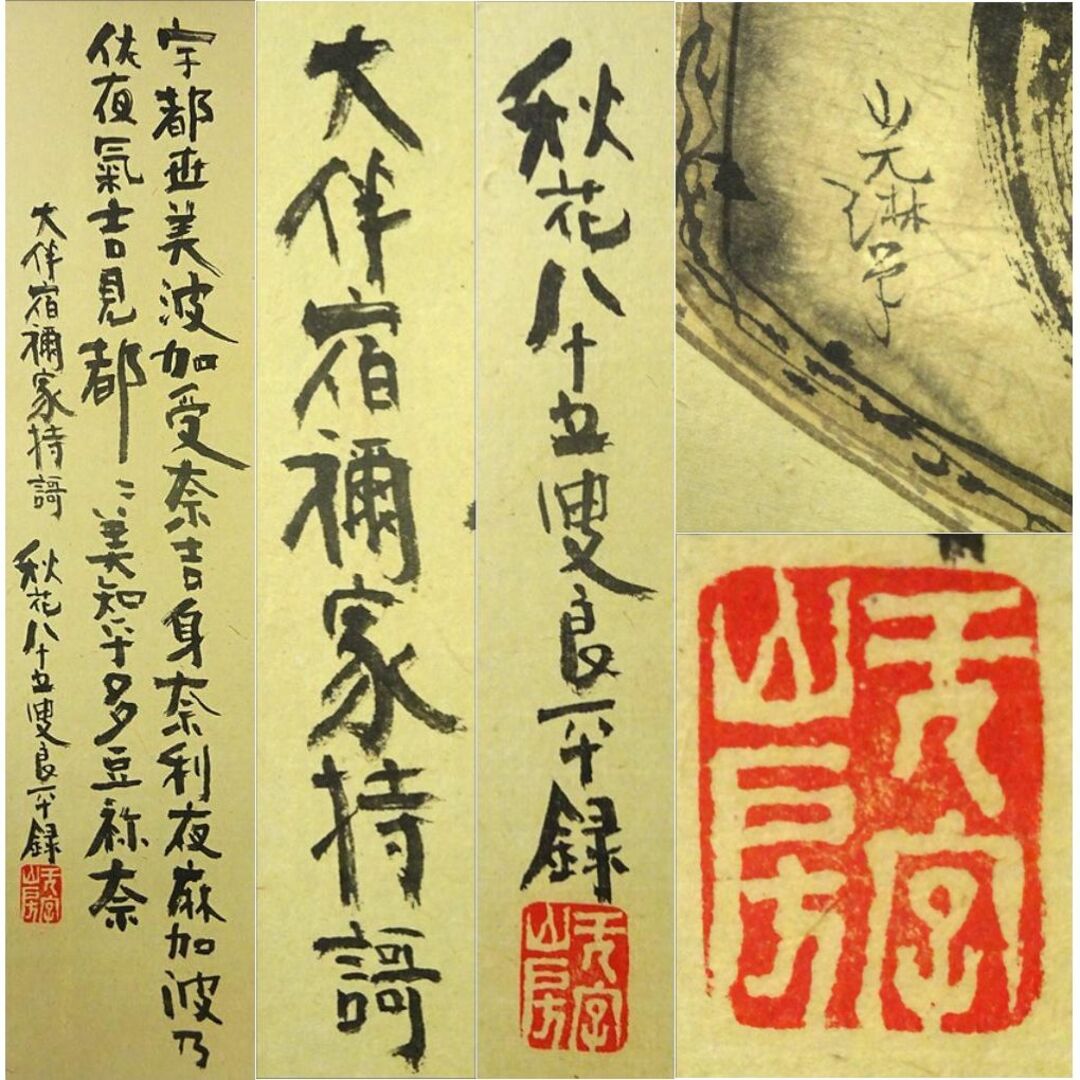 宇都世美波加受奈吉身奈利夜麻加波乃
佐夜氣吉見都〻美知乎多豆祢奈
大伴宿禰家持謌 秋花八十五叟良平録
天字山房
大伴宿禰家持謌
秋花八十五叟良平録
天字山房
山元
天字
山房